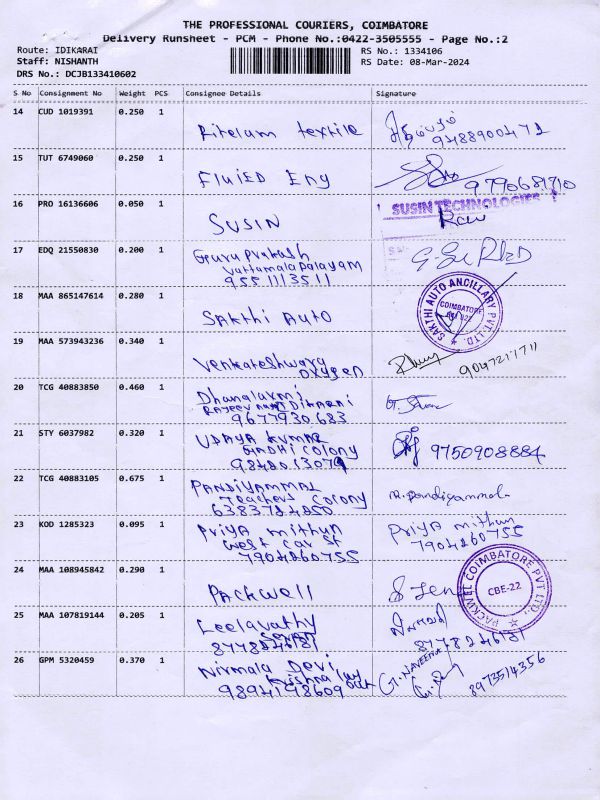 THE PROFESSIONAL COURIERS, COIMBATORE
Delivery Runsheet - PCM - Phone No.:0422-3505555 - Page No.:2
Route: IDIKARAI
RS No.: 1334106
Staff: NISHANTH
RS Date: 08-Mar-2024
DRS No.: DCJB133410602
S No Consignment No Weight PCS Consignee Details Signature
14 CUD 1019391 0.250 1
Ritelam textile
9488900472
15 TUT 6749060 0.250 1
FluiED Eng
9790681710
16 PRO 16136606 0.050 1
SUSIN TECHNOLOGIES
SUSIN
Ravi
17 EDQ 21550830 0.200 1
Guru Prakash
Vattamalapalayam
9551113511
18 MAA 865147614 0.280 1
SAKTHI AUTO ANCILLARY PVT. LTD.
COIMBATORE
SAkthi Auto
19 MAA 573943236 0.340 1
Venkateshwara
Oxygen
9047211711
20 TCG 40883850 0.460 1
Dhanalaxmi
9677930683
21 STY 6037982 0.320 1
UDAYA KUMAR
GANDHI Colony
9750908884
22 TCG 40883105 0.675 1
PANDIYAMMAL
Teachers Colony
6383784850
M. Pandiyammal
23 KOD 1285323 0.095 1
PriyA mithun
West Car St
7904260755
PriyA mithun
7904260755
24 MAA 108945842 0.290 1
PACKWELL COIMBATORE PVT LTD.,
CBE-22
PAckwell
25 MAA 107819144 0.205 1
Leelavathy
8778246181
26 GPM 5320459 0.370 1
Nirmala Devi
Krishna Lay out
9894198609
G. NAVEENA
8973514356